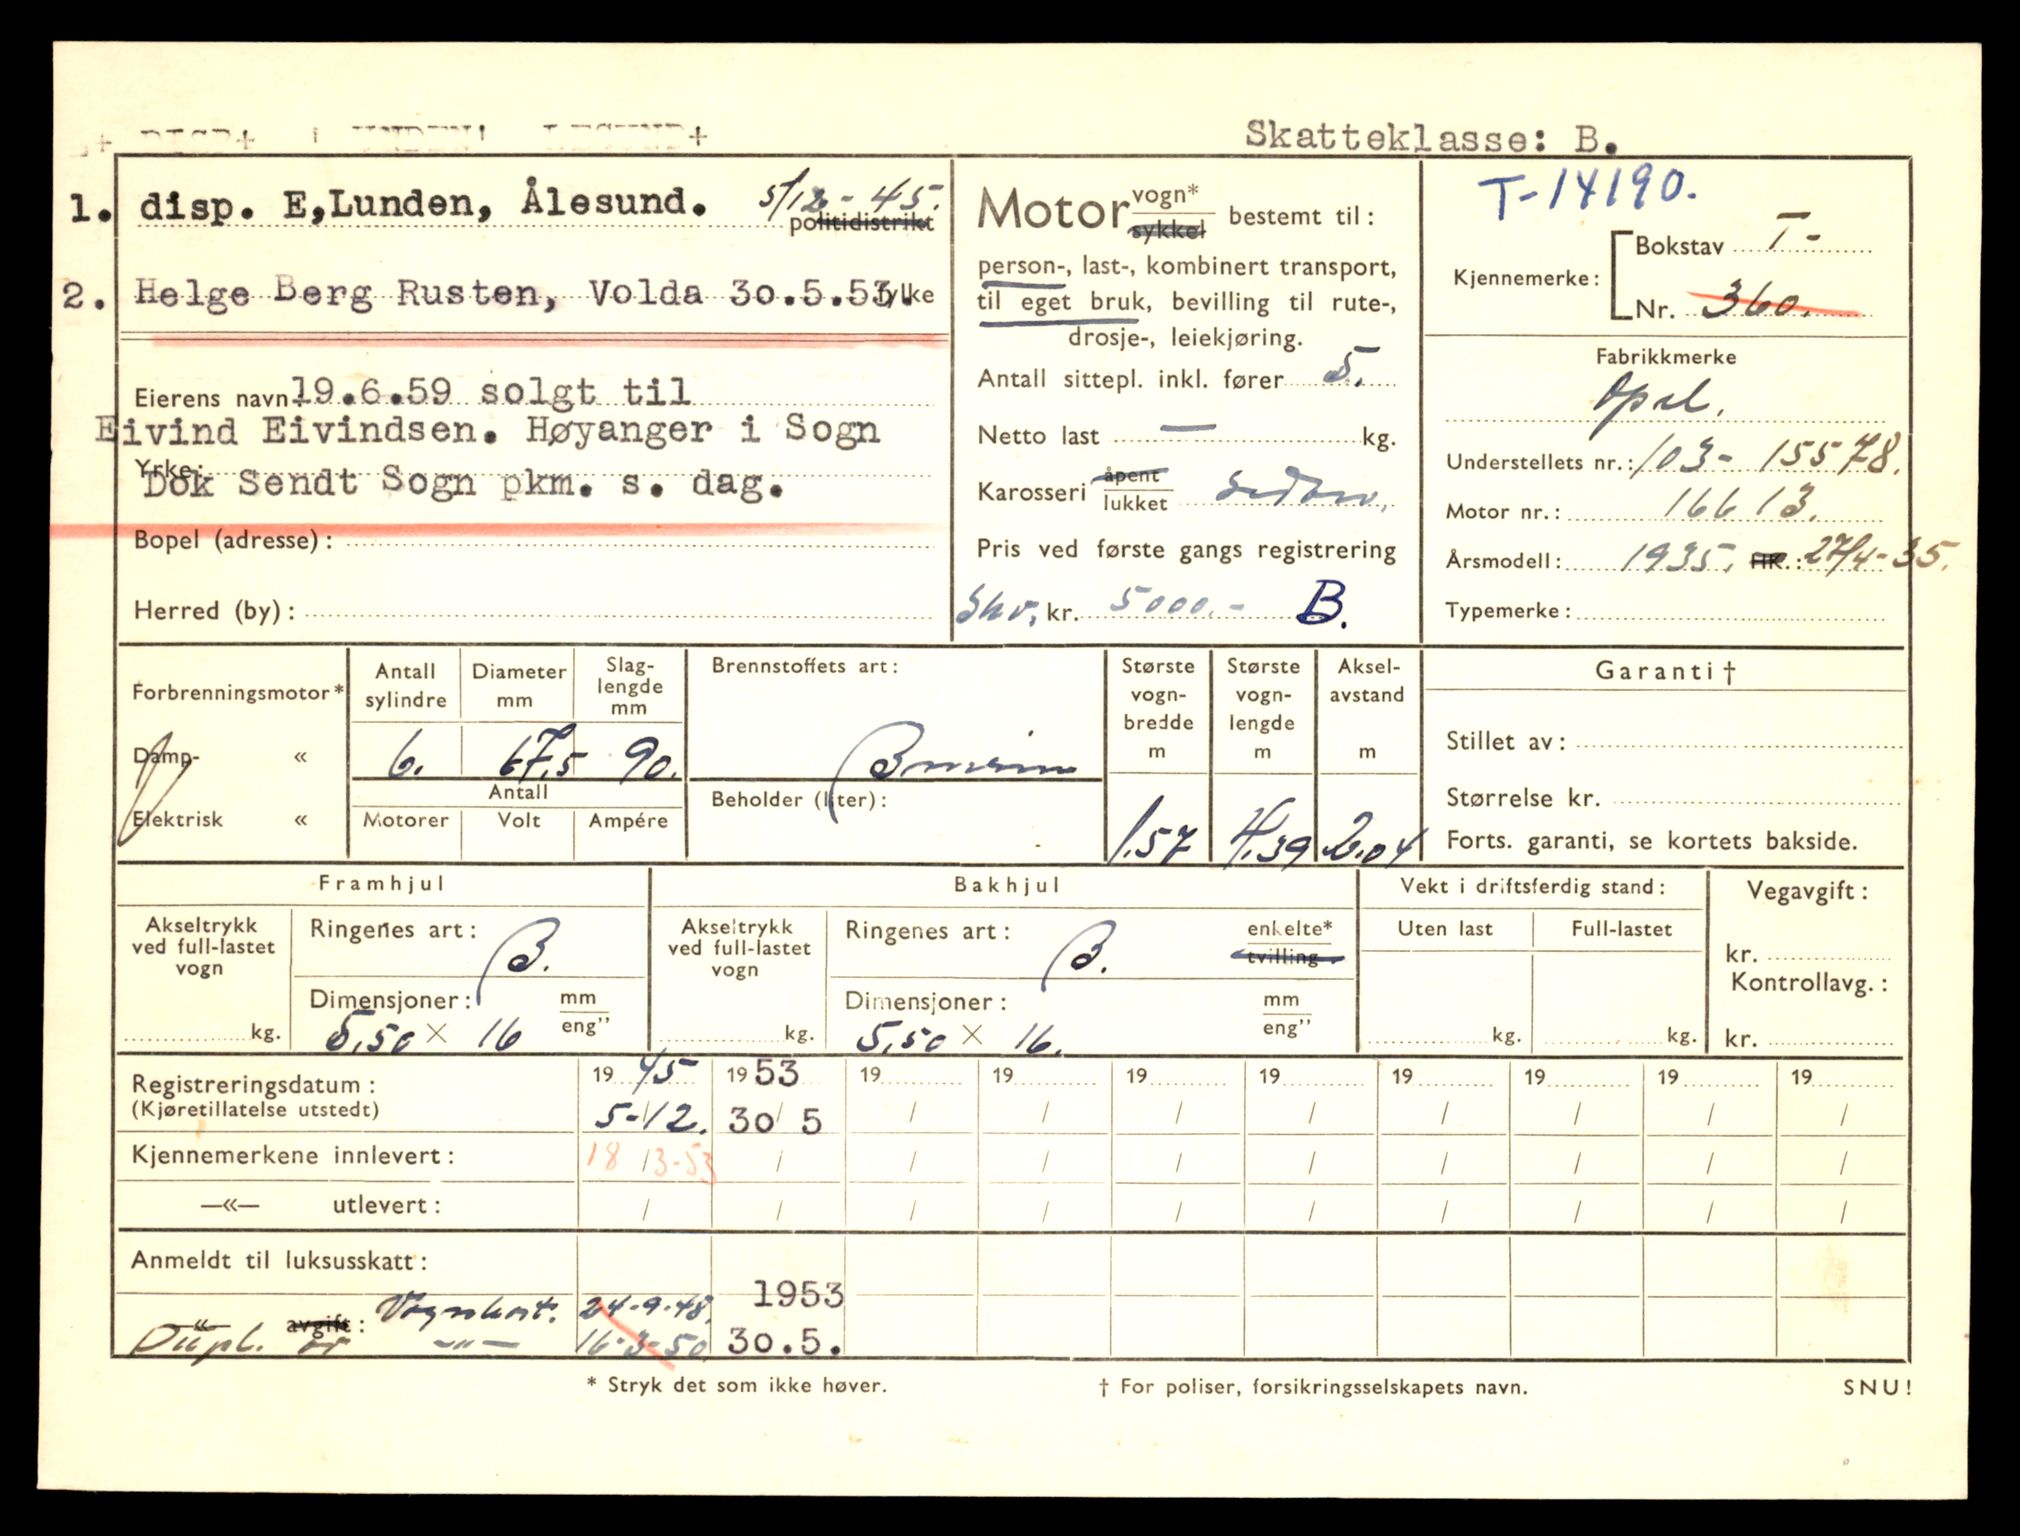 Skatteklasse: B.
1. disp. E,Lunden, Ålesund. 5/12-45.
politidistrikt
2. Helge Berg Rusten, Volda 30.5.53.
fylke
Eierens navn 19.6.59 solgt til
Eivind Eivindsen. Høyanger i Sogn
Yrke:
Dok Sendt Sogn pkm. s. dag.
Bopel (adresse):
Herred (by):
Motor vogn*
sykkel bestemt til:
person-, last-, kombinert transport,
til eget bruk, bevilling til rute-,
drosje-, leiekjøring.
Antall sittepl. inkl. fører 5.
Netto last — kg.
Karosseri åpent
lukket Sedan.
Pris ved første gangs registrering
Skv. kr. 5000.- B.
T-14190.
Kjennemerke: Bokstav T-
Nr. 360.
Fabrikkmerke
Opel.
Understellets nr.: 103-15578.
Motor nr.: 16613.
Årsmodell: 1935. HK.: 27/4-35.
Typemerke:
Forbrenningsmotor*
Damp- «
Elektrisk «
Antall sylindre
Diameter mm
Slaglengde mm
6. 67,5 90.
Antall
Motorer Volt Ampére
Brennstoffets art:
Bensin
Beholder (liter):
Største vognbredde m
1.57
Største vognlengde m
4.39
Akselavstand m
2.04
Garanti †
Stillet av:
Størrelse kr.
Forts. garanti, se kortets bakside.
Framhjul
Akseltrykk ved full-lastet vogn
kg.
Ringenes art: B.
Dimensjoner: mm
eng"
5,50 × 16
Bakhjul
Akseltrykk ved full-lastet vogn
kg.
Ringenes art: B. enkelte*
tvilling
Dimensjoner: mm
eng"
5,50 × 16.
Vekt i driftsferdig stand:
Uten last Full-lastet
kg. kg.
Vegavgift:
kr.
Kontrollavg.:
kr.
Registreringsdatum: 19 45 19 53 19 19 19 19 19 19 19 19
(Kjøretillatelse utstedt) 5-/12. 30/ 5 / / / / / / / /
Kjennemerkene innlevert: 18/3-53 / / / / / / / / /
—«— utlevert: / / / / / / / / / /
Anmeldt til luksusskatt:
—«— avgift: Vognkort. 24-9-48. 1953
Dupl. av —"— 16-3-50 30.5.
* Stryk det som ikke høver.
† For poliser, forsikringsselskapets navn.
SNU!